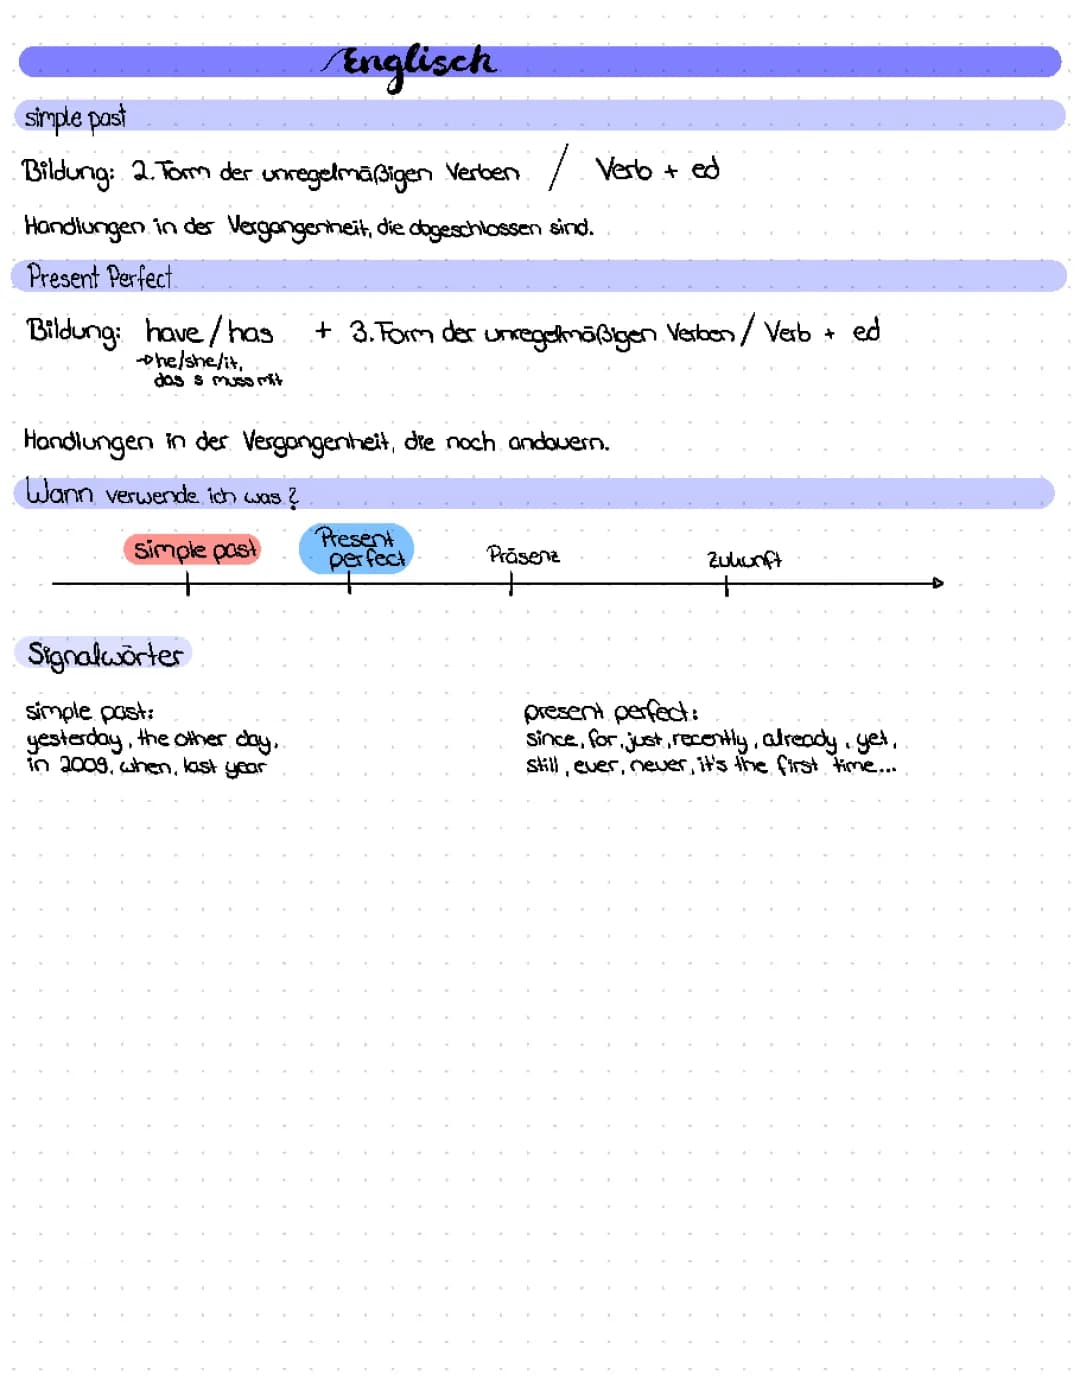 Englisch
simple past
Bildung: 2. Form der unregelmäßigen Verben / Verb + ed
Handlungen in der Vergangenheit, die abgeschlossen sind.
Present Perfect
Bildung: have / has + 3. Form der unregelmäßigen Verben / Verb + ed
→ he/she/it,
das s muss mit
Handlungen in der Vergangenheit, die noch andauern.
Wann verwende ich was?
simple past
Present
perfect
Präsenz
Zukunft
Signalwörter
simple past:
yesterday, the other day,
in 2009, when, last year
present perfect:
since, for, just, recently, already, yet,
still, ever, never, it's the first time...